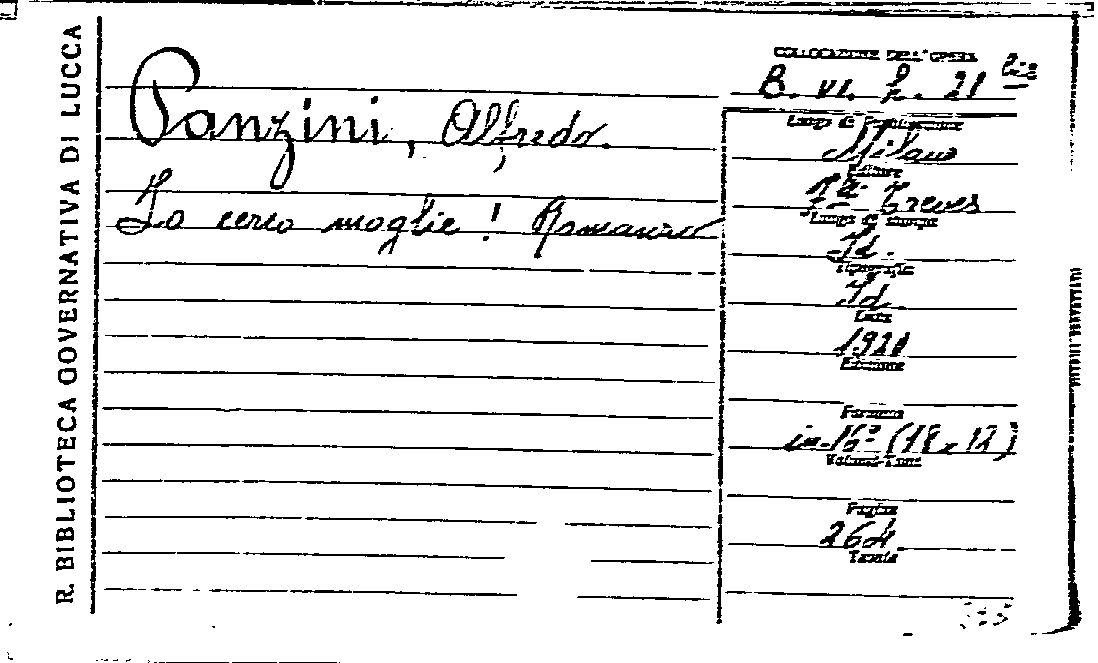 R. BIBLIOTECA GOVERNATIVA DI LUCCA
Panzini, Alfredo.
Io cerco moglie! Romanzo
COLLOCAZIONE DELL'OPERA
B. VI. h. 21 bis
Luogo di Pubblicazione
Milano
Editore
Treves
Luogo di Stampa
Id.
Tipografia
Id.
Data
1920
Edizione
Formato
in-16º (18 x 12)
Volumi-Tomi
Pagine
264
Tavole